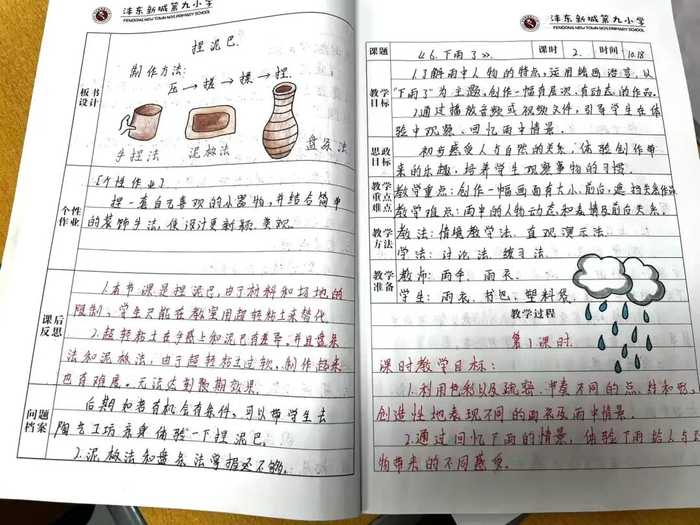 沣东新城第九小学
FENGDONG NEW TOWN NO.9 PRIMARY SCHOOL
板书设计
捏泥巴
制作方法:
压→搓→揉→捏
手捏法 泥板法 盘条法
个性作业
[个性作业]
捏一着自己喜欢的小器物,并结合简单
的装饰手法,使设计更新颖、美观.
课后反思
1.本节课是捏泥巴,由于材料和场地的
限制、学生只能在教室用超轻粘土来替代
2.超轻粘土在手感上和泥巴有差异,并且盘条
法和泥板法,由于超轻粘土过软,制作起来
也有难度.无法达到预期效果.
问题档案
后期和若有机会有条件,可以带学生去
陶艺工坊亲身体验一下捏泥巴.
2.泥板法和盘条法掌握还不够.
沣东新城第九小学
FENGDONG NEW TOWN NO.9 PRIMARY SCHOOL
课题 《6.下雨了》. 课时 2. 时间 10.18
教学目标
1.了解雨中人物的特点,运用绘画语言,以
"下雨了"为主题,创作一幅有层次、有动态的作品.
2.通过播放音频或视频文件,引导学生在体
验中观察、回忆雨中情景.
思政目标
初步感受人与自然的关系,体验创作带
来的乐趣,培养学生观察事物的习惯.
教学重点难点
教学重点:创作一幅画面有大小、前后、遮挡关系作品
教学难点:雨中的人物动态和表情及前后关系.
教学方法
教法:情境教学法、直观演示法.
学法:讨论法、练习法.
教学准备
教师:雨伞、雨衣.
学生:雨衣、书包、塑料袋.
教学过程
第1课时.
课时教学目标:
1.利用色彩以及疏密、节奏不同的点、线和形,
创造性地表现不同的雨衣及雨中情景.
2.通过回忆下雨的情景,体验下雨给人与
物带来的不同感受.